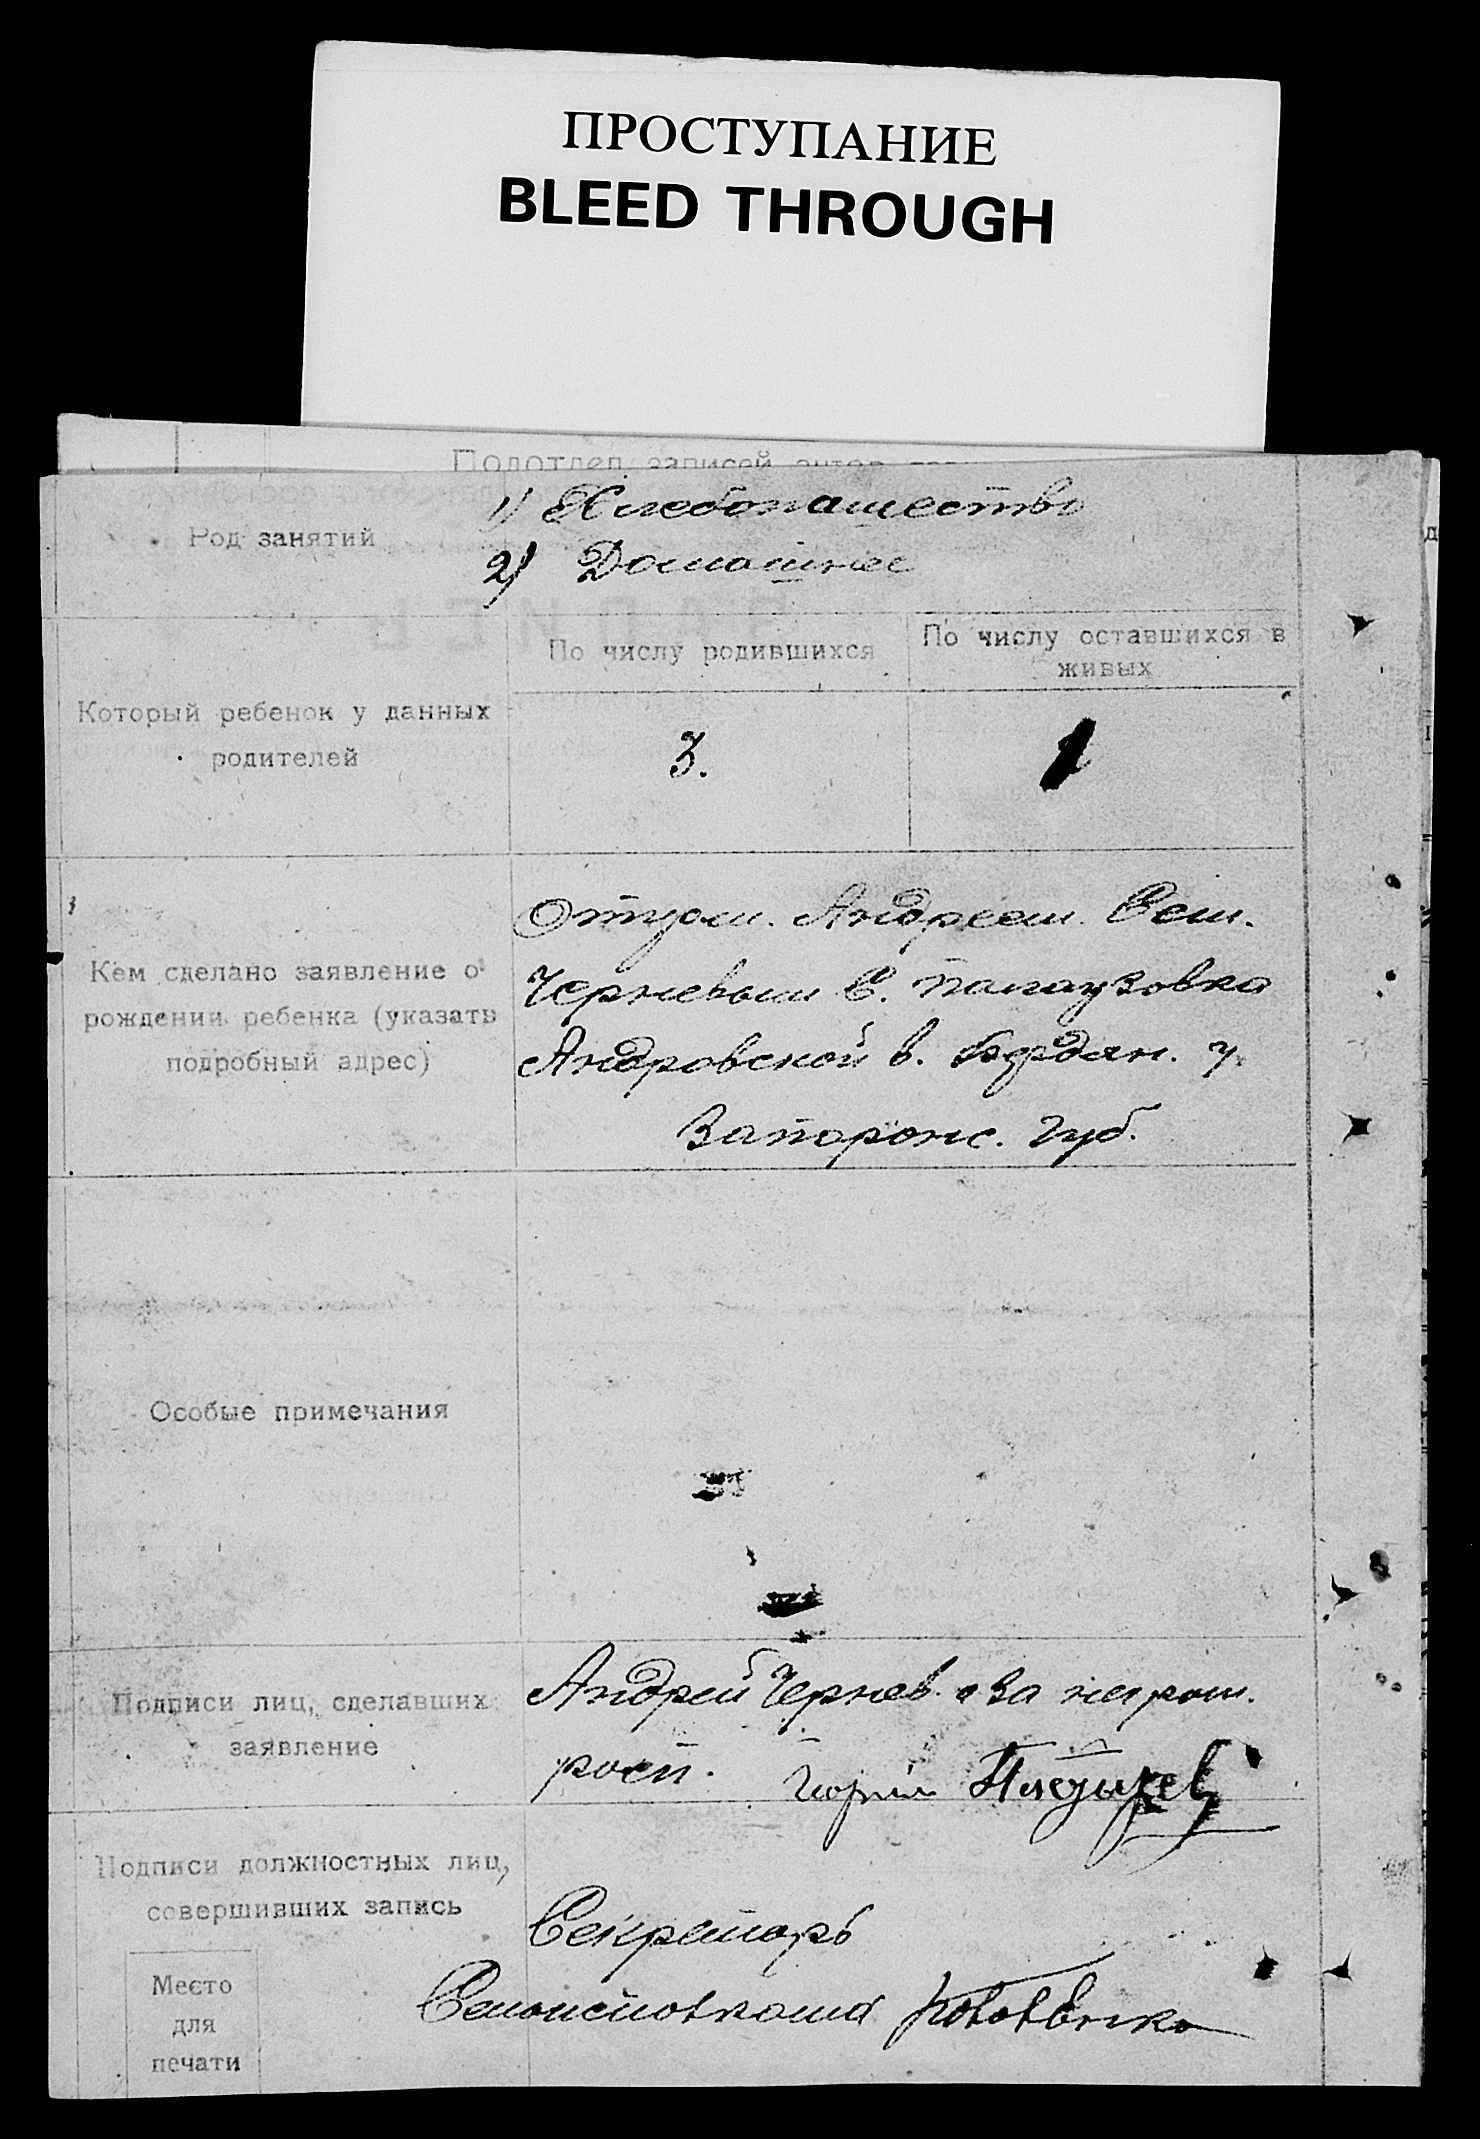 ПРОСТУПАНИЕ
BLEED THROUGH
Подотдел записей актов
Род занятий
1) Хлебопашество
2) Домашнее
Который ребенок у данных
родителей
По числу родившихся
По числу оставшихся в
живых
3.
Кем сделано заявление о
рождении ребенка (указать
подробный адрес)
Отцом. Андреем. Сем.
Черневым С. Палаузовка
Андровской в. Бердян. у.
Запорожс. Губ.
Особые примечания
Подписи лиц, сделавших
заявление
Андрей Чернев. За неграм.
росп.
Подписи должностных лиц,
совершивших запись
Секретарь
Место
для
печати